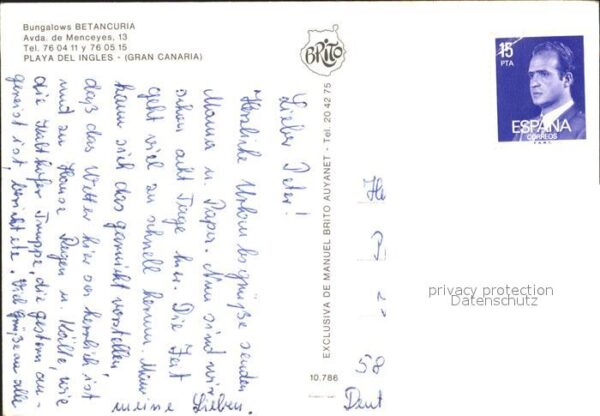 Bungalows BETANCURIA
Avda. de Menceyes, 13
Tel. 76 04 11 y 76 05 15
PLAYA DEL INGLES - (GRAN CANARIA)
BRITO
15
PTA
ESPAÑA
CORREOS
Lieber Peter!
Herzliche Urlaubsgrüße senden
Mama u. Papa. Nun sind wir
schon acht Tage hier. Die Zeit
geht viel zu schnell herum. Man
kann sich das garnicht vorstellen,
daß das Wetter hier so herrlich ist
und zu Hause Regen u. Kälte, wie
die Truppe, die gestern an-
gereist ist, berichtete. Viel Grüße an alle
meine Lieben.
EXCLUSIVA DE MANUEL BRITO AUYANET - Tel. 20 42 75
10.786
He
P
58
Deut
privacy protection
Datenschutz